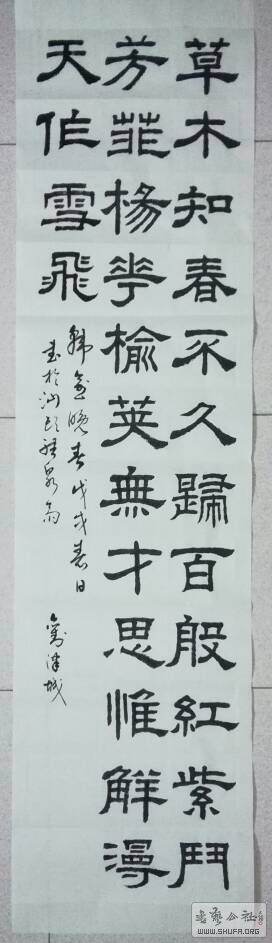 草木知春不久歸百般紅紫鬥
芳菲楊花榆莢無才思惟解漫
天作雪飛
韓愈晚春戊戌春日
書於汕頭
书艺公社
WWW.SHUFA.ORG